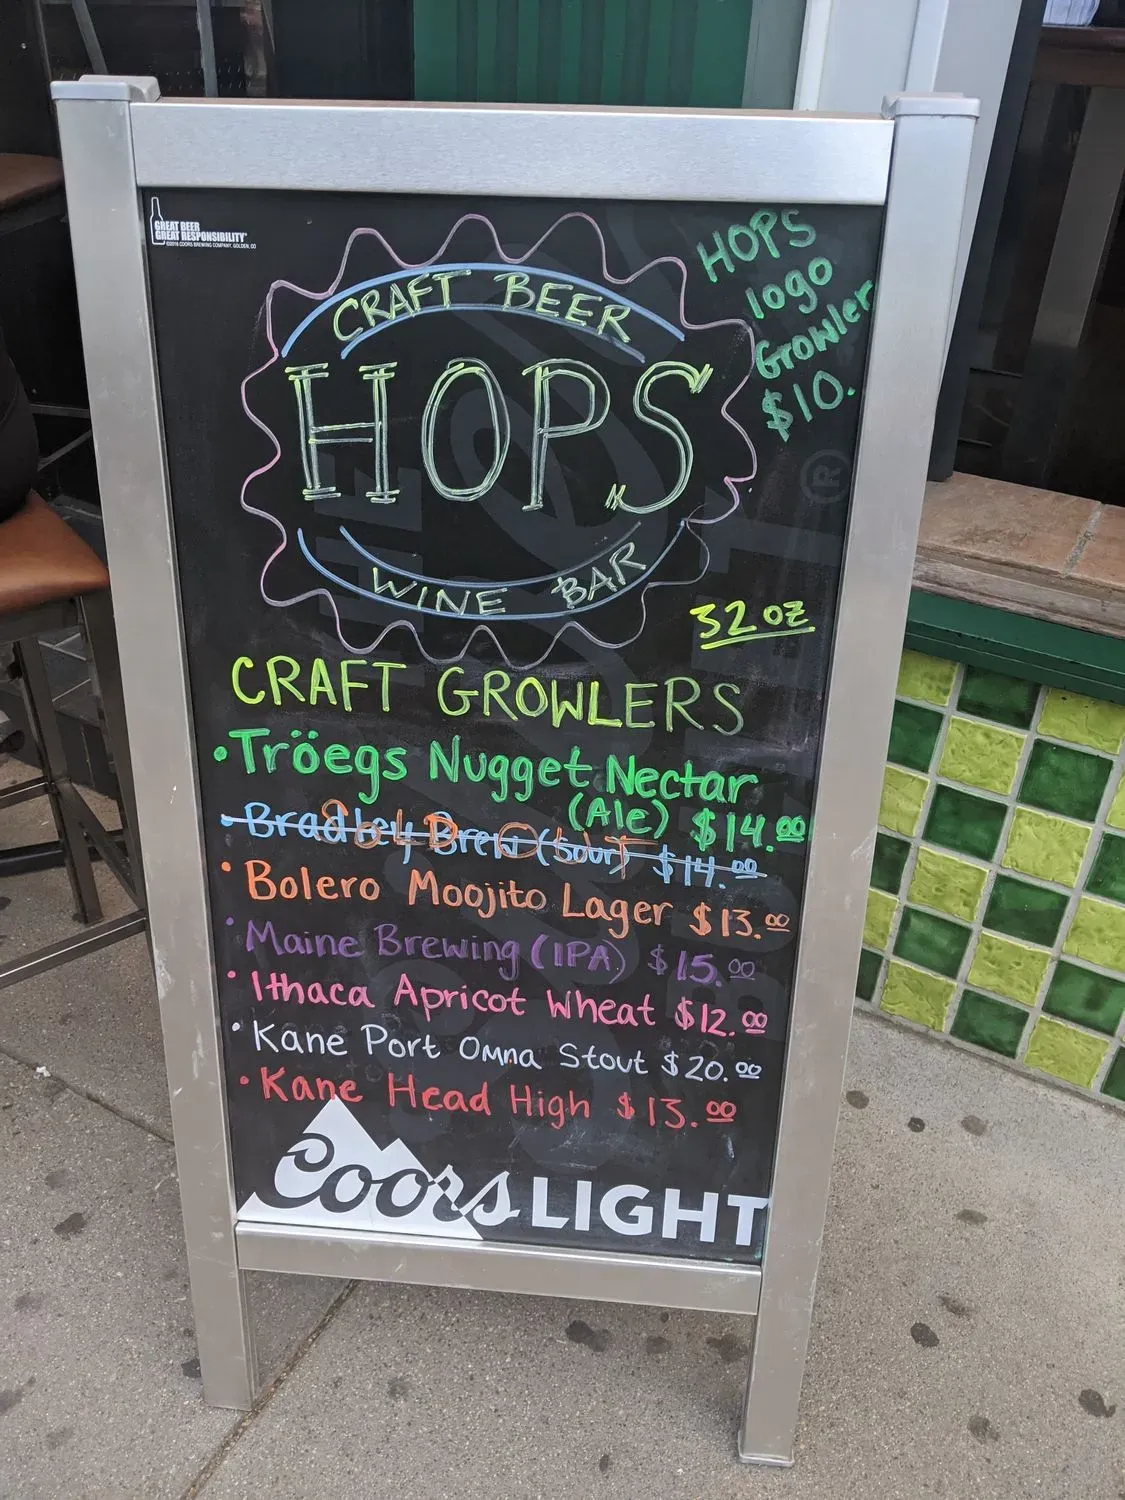 GREAT BEER
GREAT RESPONSIBILITY®
©2016 COORS BREWING COMPANY, GOLDEN, CO
HOPS
logo
Growler
$10.
CRAFT BEER
HOPS
WINE BAR
32 oz
CRAFT GROWLERS
•Tröegs Nugget Nectar
(Ale) $14.00
•Bradley Brew (Sour) $14.00
SOLD OUT
•Bolero Moojito Lager $13.00
•Maine Brewing (IPA) $15.00
•Ithaca Apricot Wheat $12.00
•Kane Port Omna Stout $20.00
•Kane Head High $13.00
Coors LIGHT